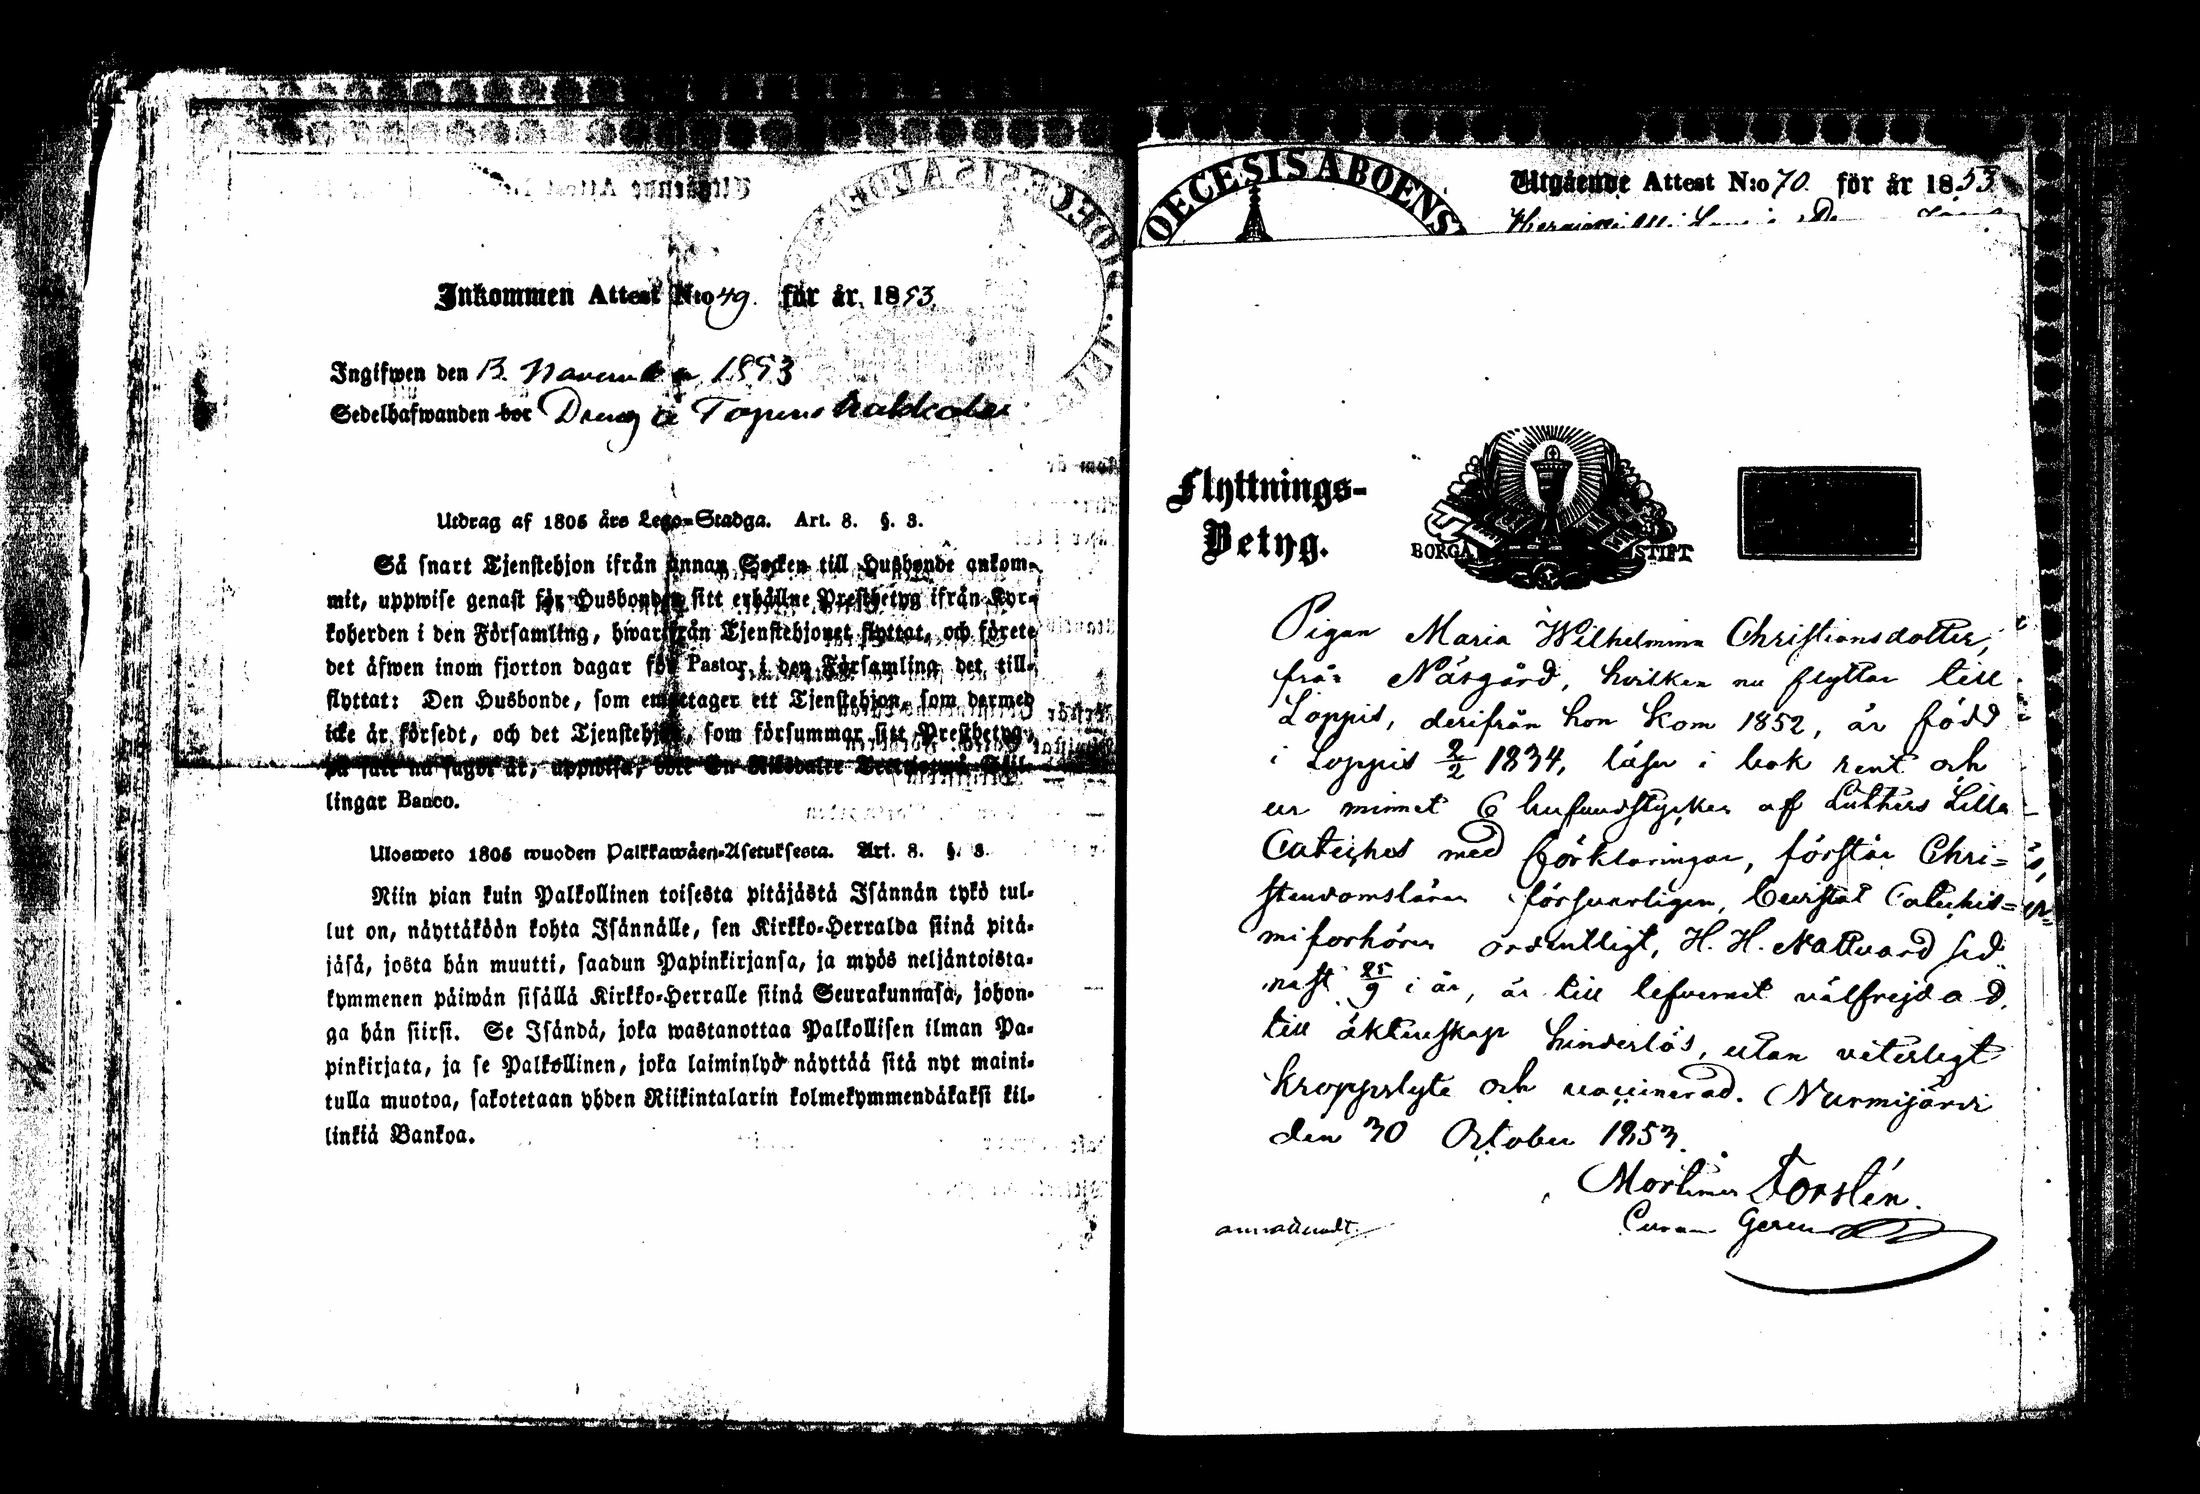 Inkommen Attest N:o 49. för år 1853.
Ingifwen den 13 November 1853
Sedelhafwanden bor Dreng å Topeno
Utdrag af 1805 års Lego-Stadga. Art. 8. §. 3.
Så snart Tjenstehjon ifrån annan Socken till Husbonde ankom-
mit, uppwise genast för Husbonden sitt erhållne Prestbetyg ifrån Kyr-
koherden i den Församling, hwarifrån Tjenstehjonet flyttat, och förete
det äfwen inom fjorton dagar för Pastor i den Församling det till-
flyttat: Den Husbonde, som emottager ett Tjenstehjon, som dermed
icke är försedt, och det Tjenstehjon, som försummar sitt Prestbetyg,
på sätt nu sagdt är, uppwisa, böte En Riksdaler
lingar Banco.
Ulosweto 1805 wuoden Palkkawäen-Asetuksesta. Art. 8. §. 3.
Niin pian kuin Palkollinen toisesta pitäjästä Isännän tykö tul-
lut on, näyttäköön kohta Isännälle, sen Kirkko-Herralda siinä pitä-
jäsä, josta hän muutti, saadun Papinkirjansa, ja myös neljäntoista-
kymmenen päiwän sisällä Kirkko-Herralle siinä Seurakunnasa, johon-
ga hän siirsi. Se Isändä, joka wastanottaa Palkollisen ilman Pa-
pinkirjata, ja se Palkollinen, joka laiminlyö näyttää sitä nyt maini-
tulla muotoa, sakotetaan yhden Riikintalarin kolmekymmendäkaksi kil-
linkiä Bankoa.
OECESIS ABOENS
Utgående Attest N:o 70. för år 1853
Flyttnings-
Betyg.
BORGÅ STIFT
Pigan Maria Wilhelmina Christiansdotter,
från Näsgård, hvilken nu flyttar till
Loppis, derifrån hon kom 1852, är född
i Loppis 2/2 1834, läser i bok rent och
ur minnet 6 hufvudstycken af Luthers Lilla
Cateches med förklaringar, förstår Chri-
stendomsläran försvarligen, bevistat Catechis-
miförhören ordentligt, H. H. Nattvard sed
nast 25/9 i år, är till lefvernet välfrejdad,
till äktenskap hinderlös, utan veterligt
kroppslyte och vaccinerad. Nurmijärvi
den 30 October 1853.
Mortimer Forstén.
Curam Gerens